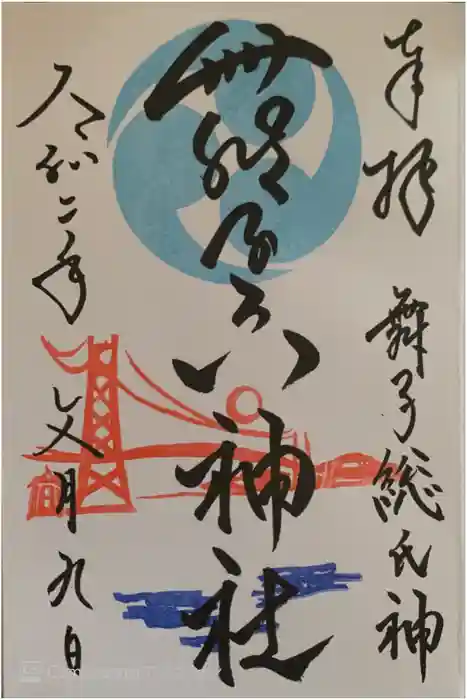 奉拝 舞子総氏神
六神社
令和二年 文月九日